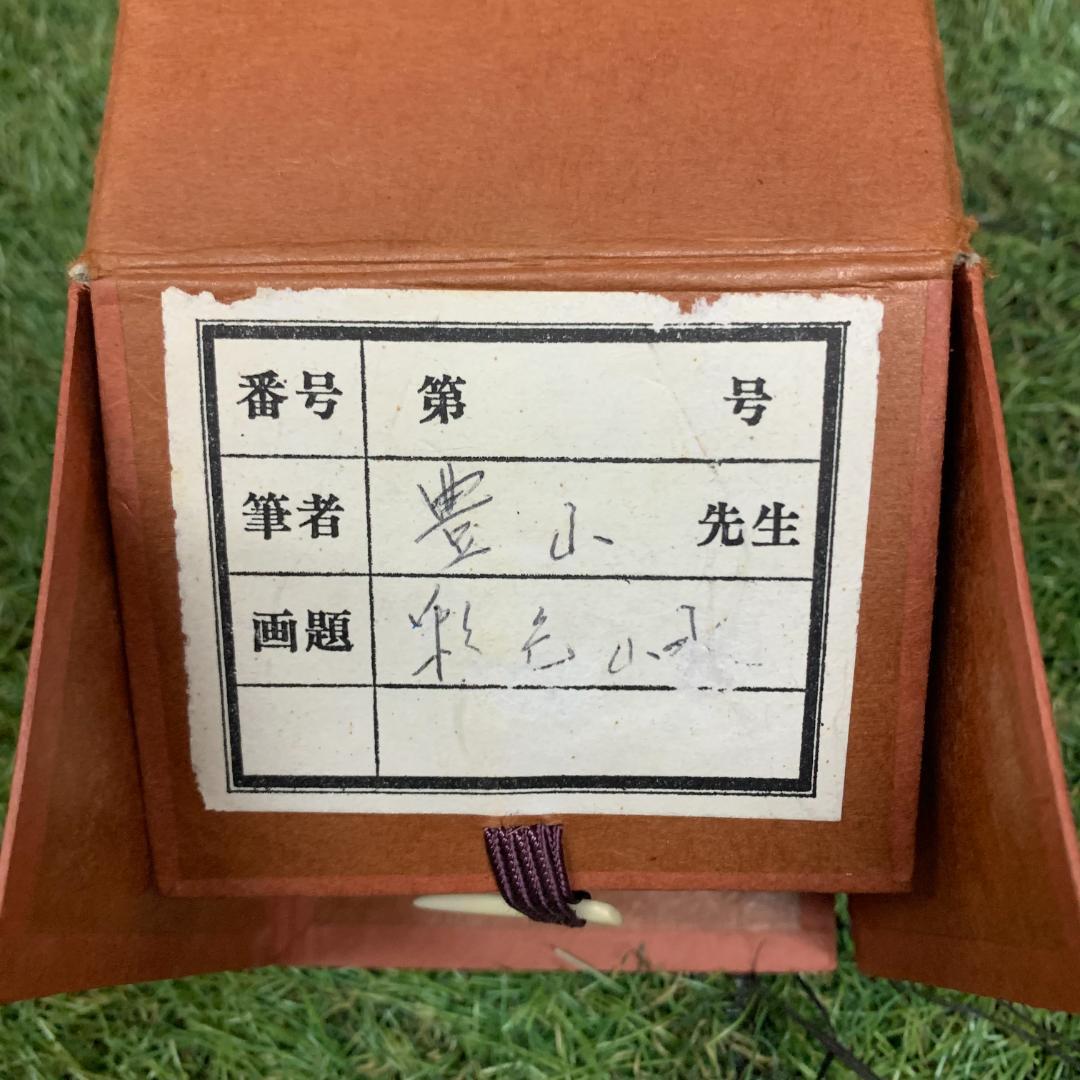 番号 第 号
筆者 豊山 先生
画題 彩色山水